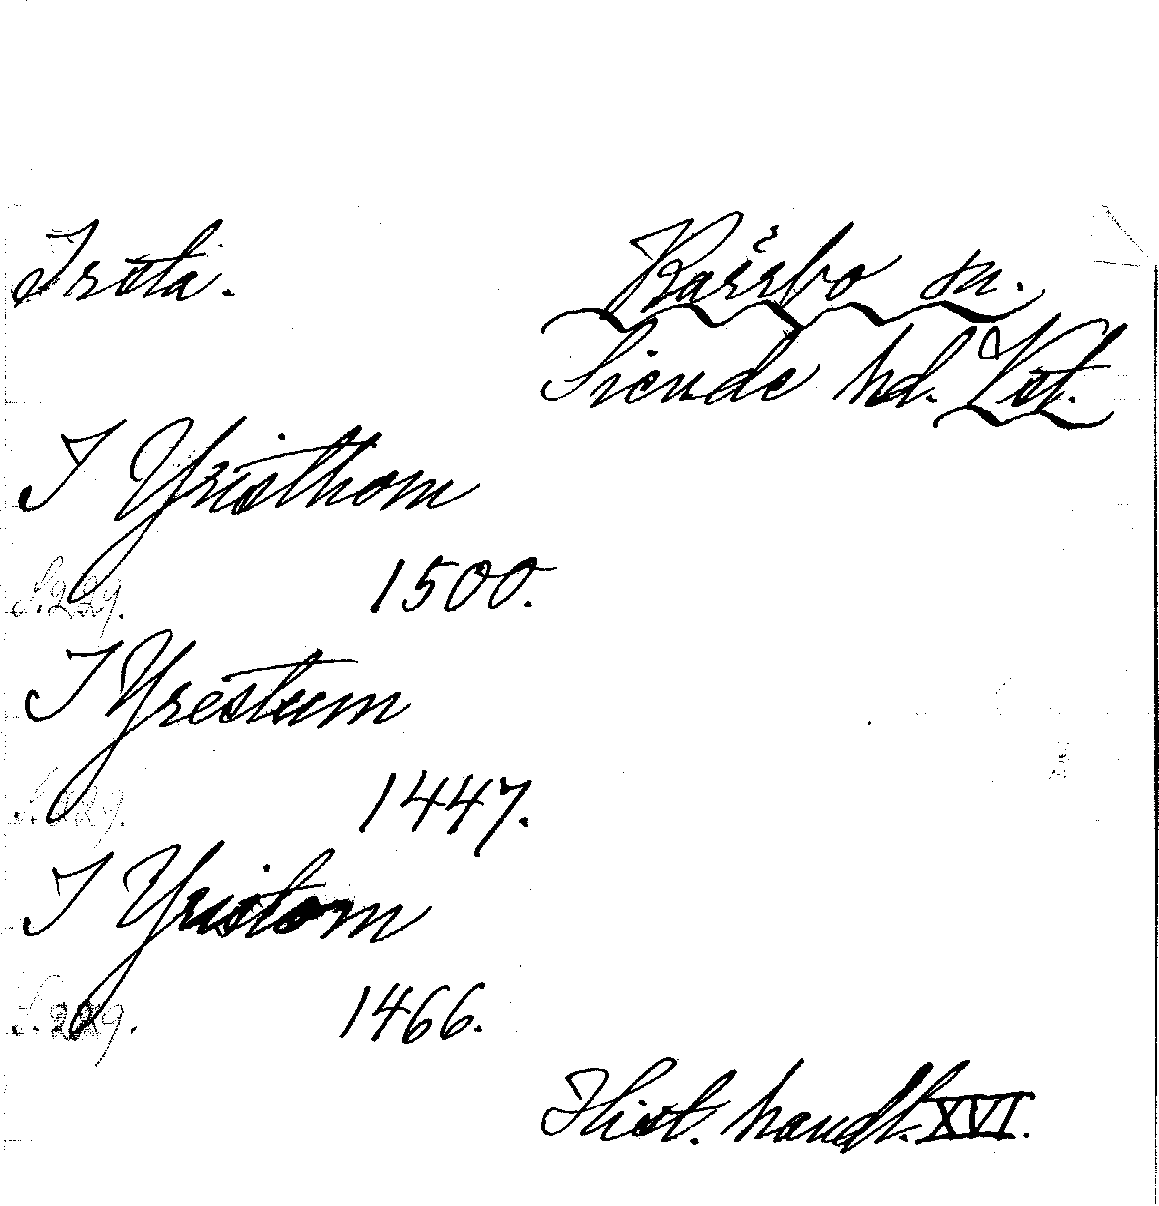 Irsta. Kärrbo sn.
Siende hd. Vst.
I Yristhom
S. 229. 1500.
I Yrestum
S. 229. 1447.
I Yristom
S. 229. 1466.
Hist. handl. XVI.